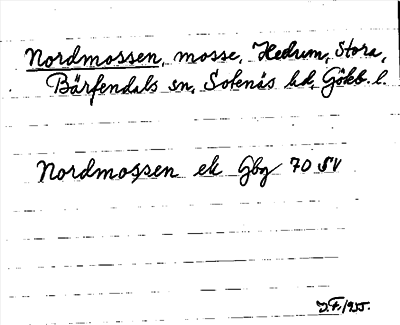 Nordmossen, mosse, Hedum, Stora,
Bärfendals sn, Sotenäs hd, Gökb. l.
Nordmossen ek Gbg 70 SV